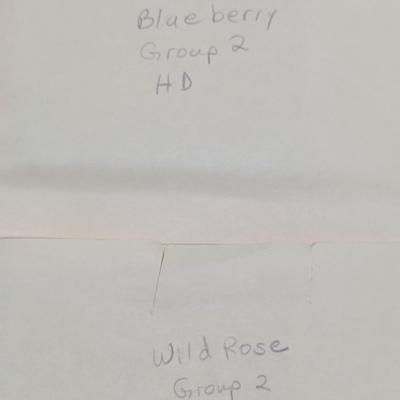 Blueberry
Group 2
HD
Wild Rose
Group 2